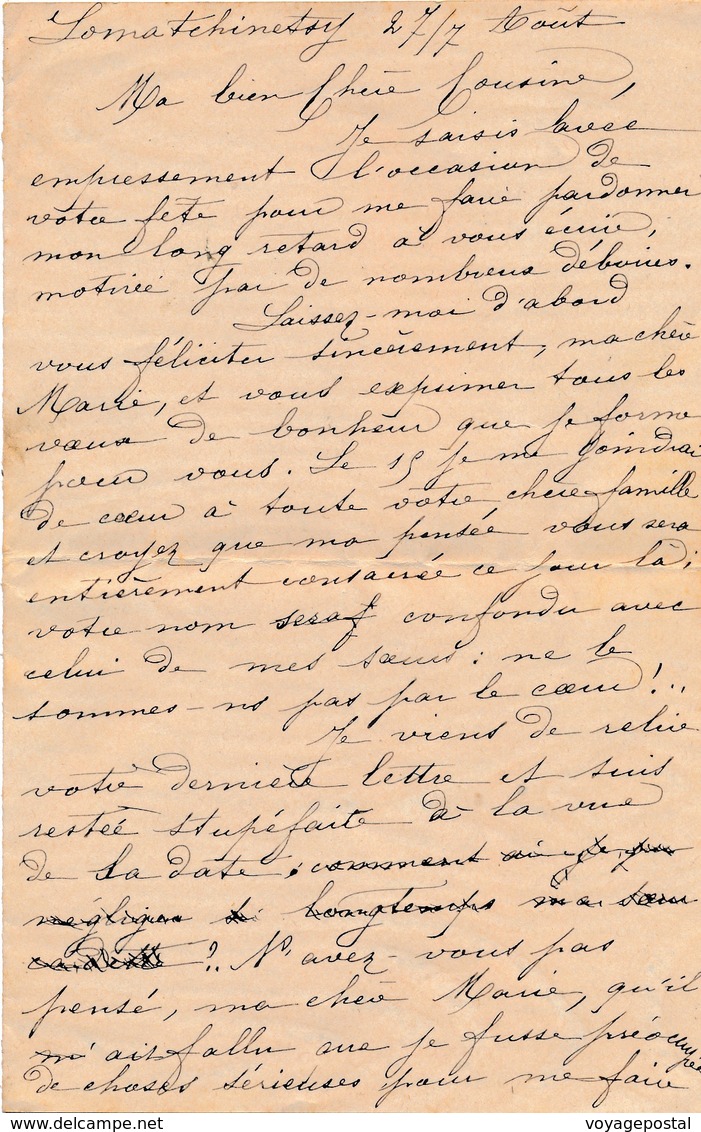 Lomatchinetsy 27/7 Août
Ma bien Chère Cousine,
Je saisis avec
empressement l'occasion de
votre fête pour me faire pardonner
mon long retard à vous écrire,
motivée par de nombreux déboires.
Laissez-moi d'abord
vous féliciter sincèrement, ma chère
Marie, et vous exprimer tous les
vœux de bonheur que je forme
pour vous. Le 15 je me joindrai
de cœur à toute votre chère famille
et croyez que ma pensée vous sera
entièrement consacrée ce jour là;
votre nom sera confondu avec
celui de mes sœurs: ne le
sommes-ns pas par le cœur!..
Je viens de relire
votre dernière lettre et suis
restée stupéfaite à la vue
de la date; comment ai-je pu
négliger si longtemps ma sœur
cadette?. N'avez-vous pas
pensé, ma chère Marie, qu'il
m'ait fallu que je fusse préoccupée
de choses sérieuses pour me faire
voyagepostal.com